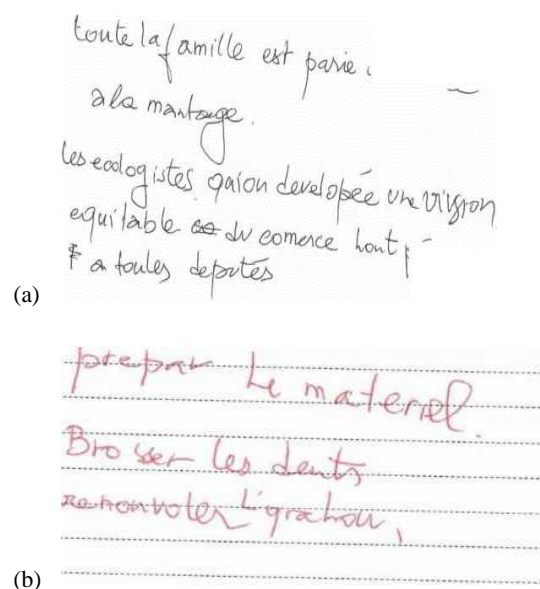 toute la famille est parie.
a la mantage.
les ecologistes qaion developée une vision
equitable du comerce hont
a toules deputés
(a)
prepar Le materiel.
Brosser les dents
renonvoler L'grahou,
(b)